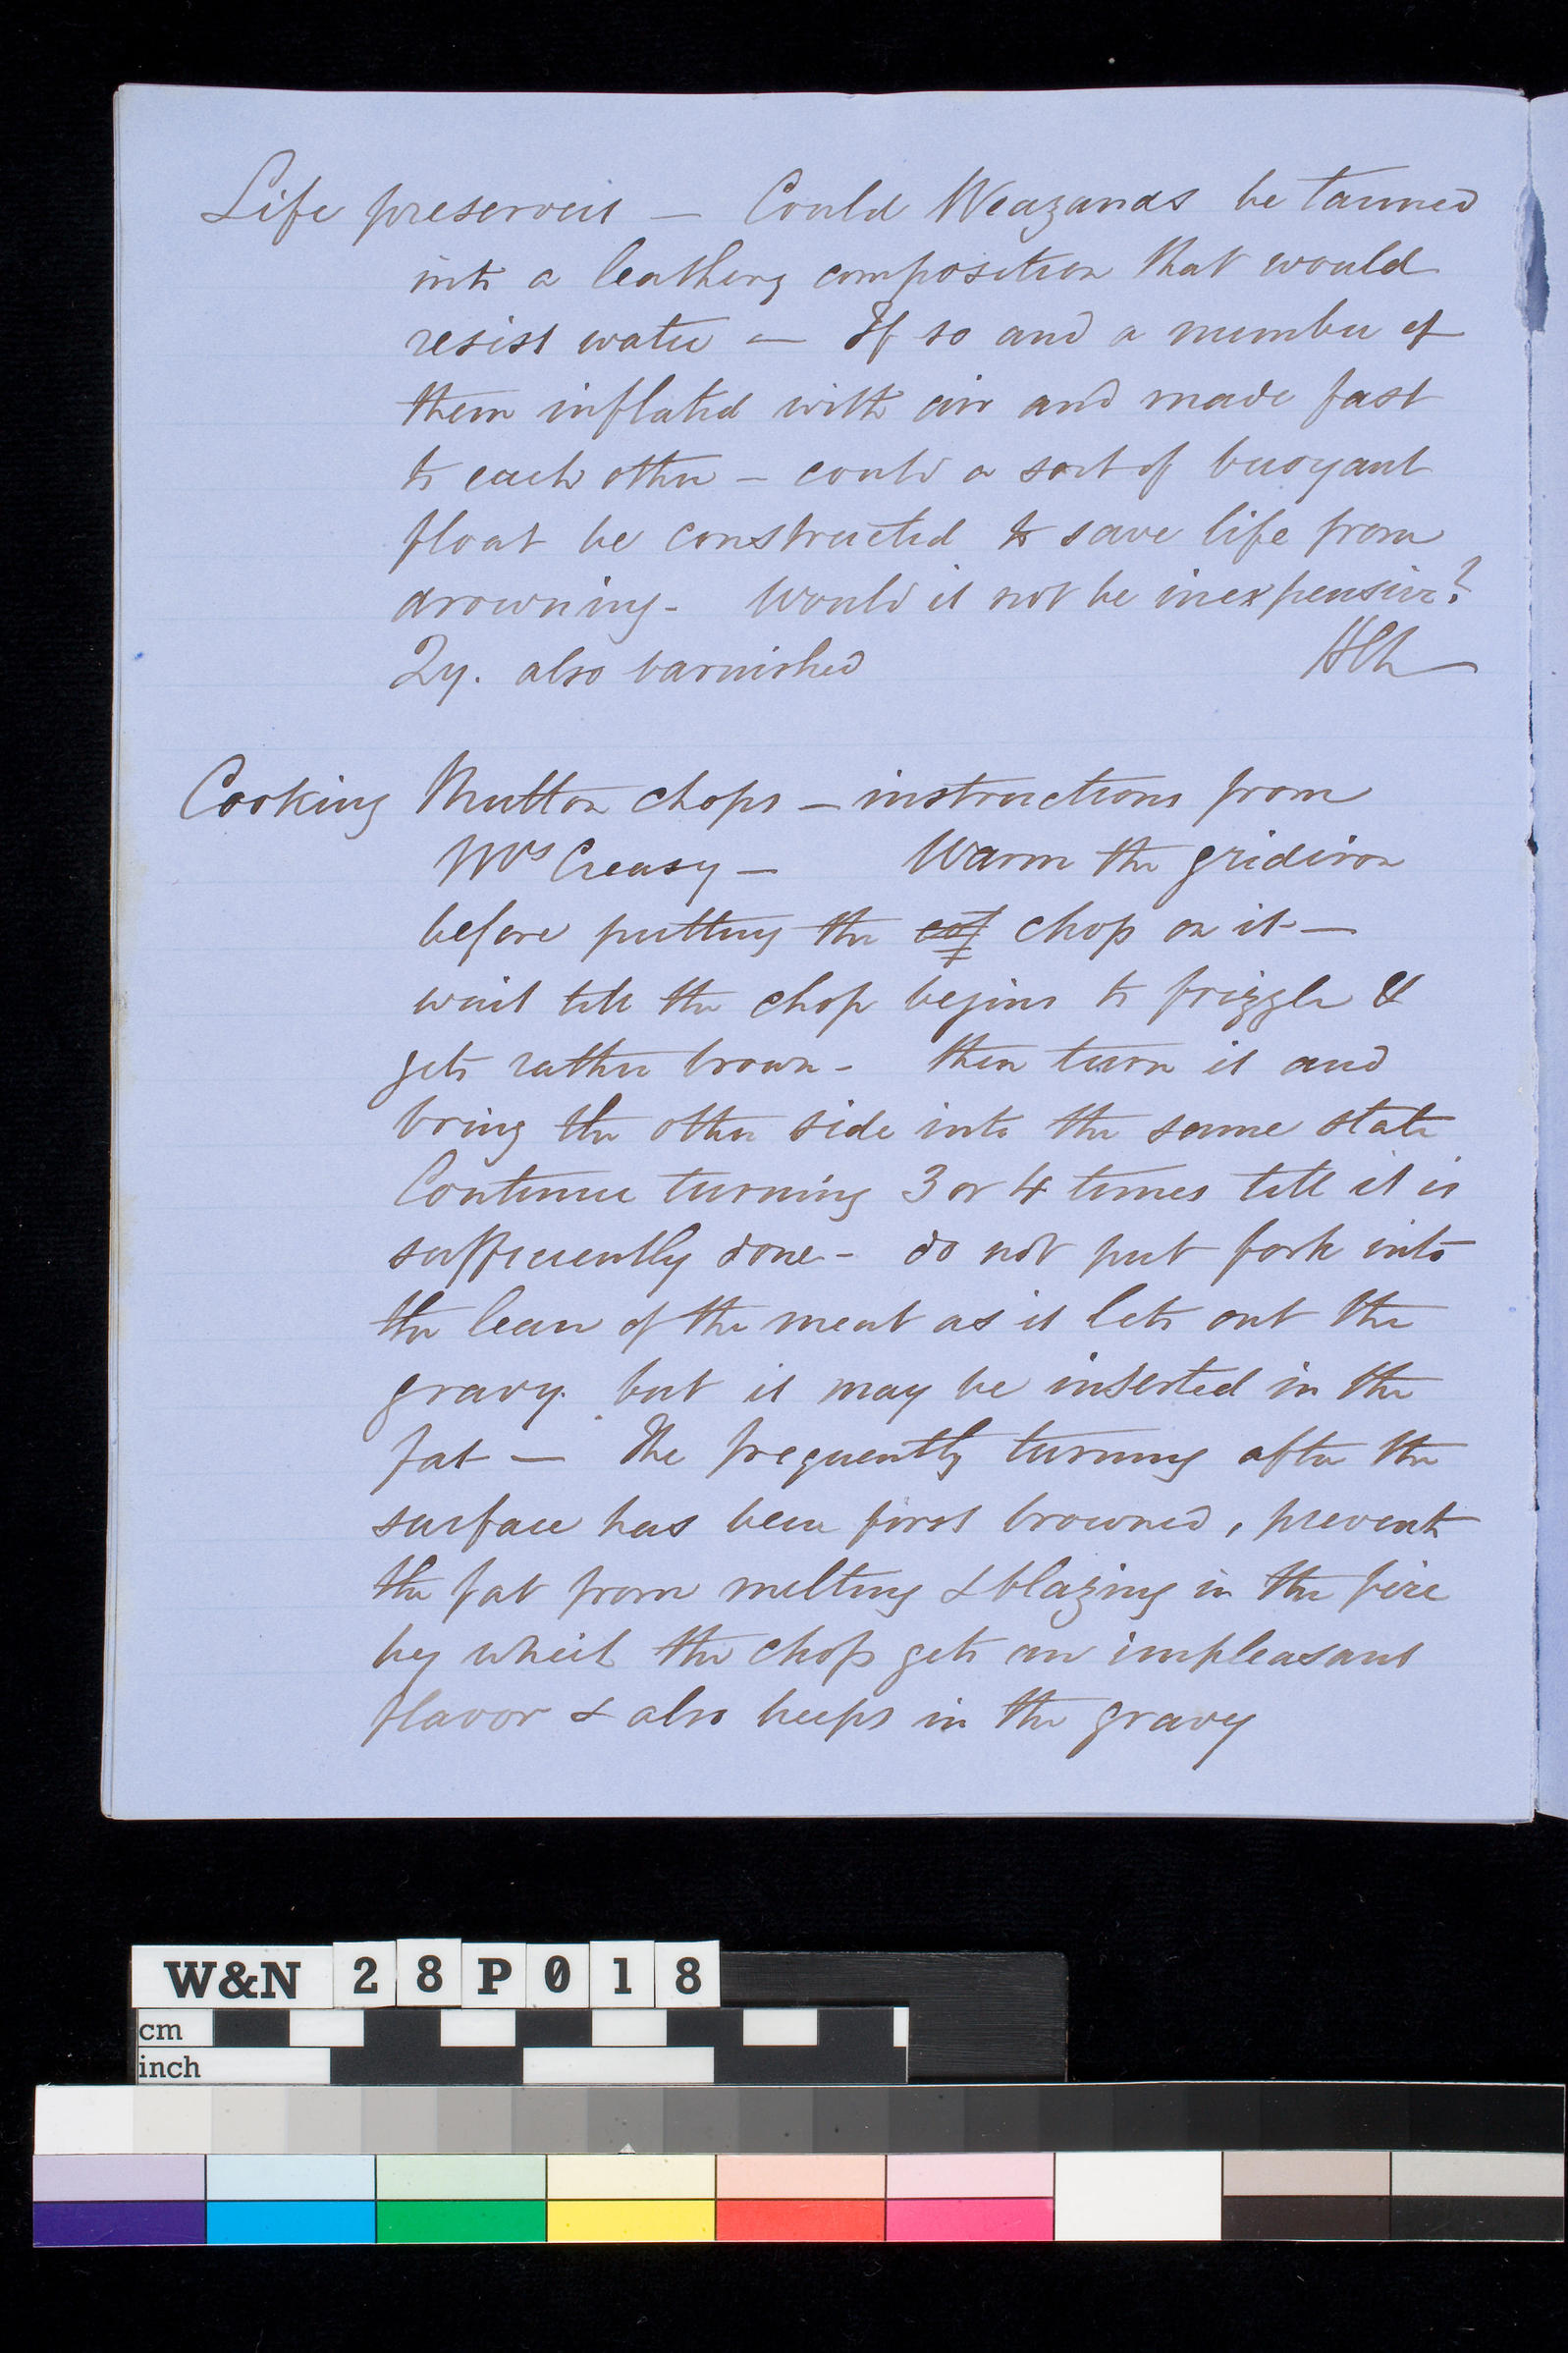 Life preservers — Could Weazands be tanned
into a leathery composition that would
resist water — If so and a number of
them inflated with air and made fast
to each other — could a sort of buoyant
float be constructed to save life from
drowning - Would it not be inexpensive?
Qy. also varnished
Cooking Mutton chops — instructions from
Mrs Creasy — Warm the gridiron
before putting the chop on it —
wait till the chop begins to frizzle &
gets rather brown - then turn it and
bring the other side into the same state
Continue turning 3 or 4 times till it is
sufficiently done - do not put fork into
the lean of the meat as it lets out the
gravy. but it may be inserted in the
fat — The frequently turning after the
surface has been first browned, prevents
the fat from melting & blazing in the fire
by which the chop gets an unpleasant
flavor & also keeps in the gravy
W&N 28P018
cm
inch